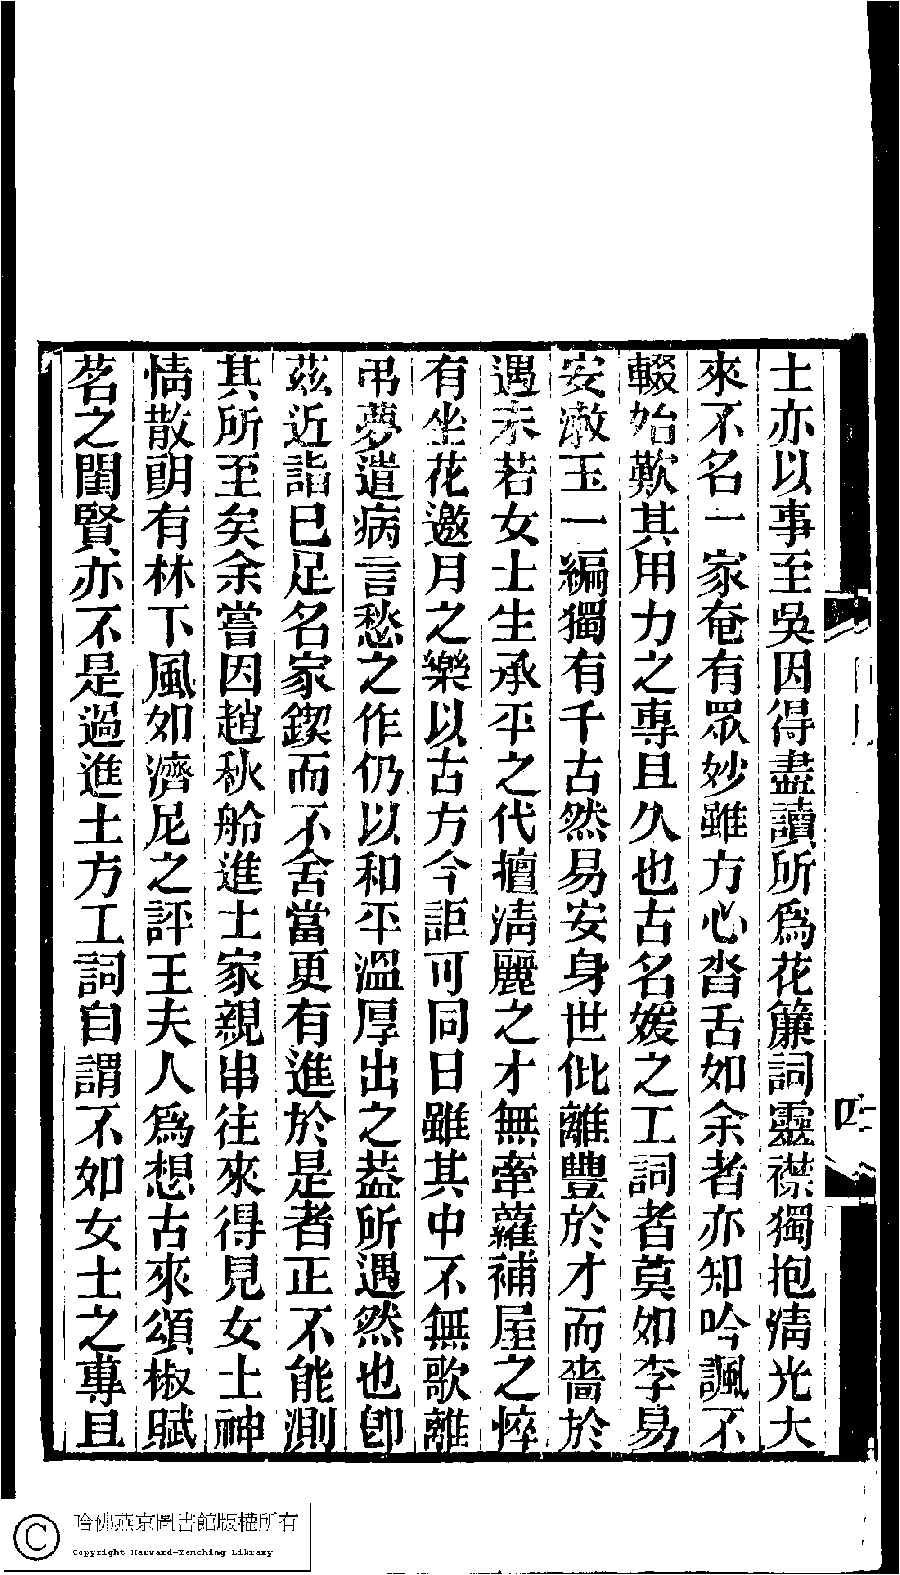 士亦以事至吳因得盡讀所為花簾詞靈襟獨抱清光大
來不名一家奄有眾妙雖方心沓舌如余者亦知吟諷不
輟始歎其用力之專且久也古名媛之工詞者莫如李易
安漱玉一編獨有千古然易安身世仳離豐於才而嗇於
遇未若女士生承平之代擅清麗之才無牽蘿補屋之悴
有坐花邀月之樂以古方今詎可同日雖其中不無歌離
弔夢遣病言愁之作仍以和平溫厚出之葢所遇然也卽
茲近詣已足名家鍥而不舍當更有進於是者正不能測
其所至矣余嘗因趙秋舲進士家親串往來得見女士神
情散朗有林下風如濟尼之評王夫人為想古來頌椒賦
茗之閨賢亦不是過進士方工詞自謂不如女士之專且
四
哈佛燕京圖書館版權所有
Copyright Harvard-Yenching Library